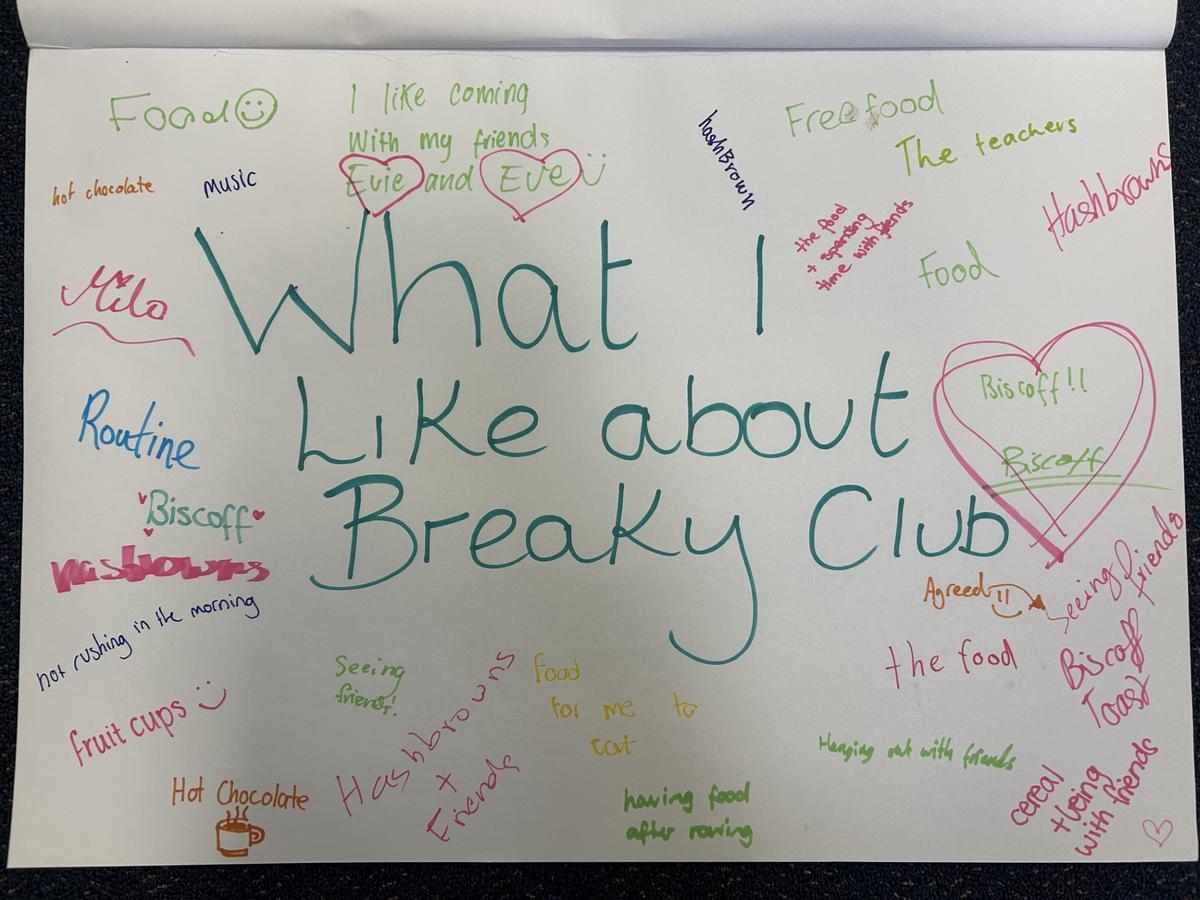 Food
I like coming
With my friends
Evie and Eve
hot chocolate
music
hashBrown
Free food
The teachers
Hashbrowns
the food
+ spending
time with friends
Food
What I
Like about
Breaky Club
Milo
Routine
Biscoff
hasbrowns
not rushing in the morning
fruit cups
Hot Chocolate
Seeing
friends!
Hashbrowns
+
Friends
Food
for me to
eat
having food
after rowing
Biscoff!!
Biscoff
Agreed!!
Seeing friends
the food
Biscoff
Toast
Hanging out with friends
cereal
+ being
with friends